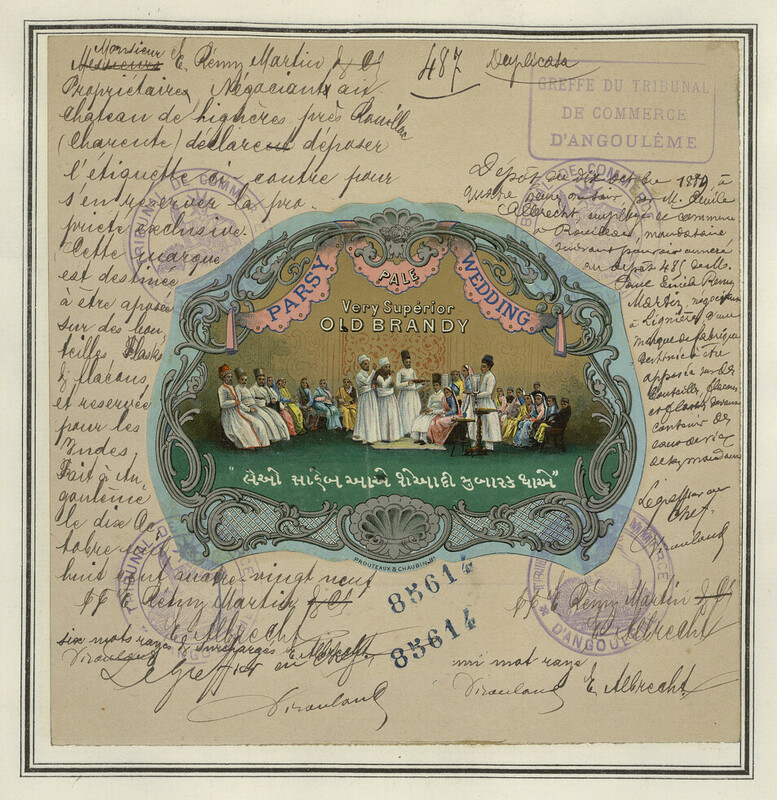 Monsieur
Messieurs E. Rémy Martin & Co
Propriétaires Négociant au
Château de Lignères près Rouillac
(Charente) déclare déposer
l'étiquette ci-contre pour
s'en réserver la pro-
priété exclusive.
Cette marque
est destinée
à être aposée
sur des bou
teilles flasks
& flacons,
et reservée
pour les
Indes,
Fait à An
goulême
le dix Oc
tobre mil
huit cent quatre vingt neuf
E. Rémy Martin & Co
E. Albrecht
six mots rayés & surchargés E. Albrecht
Le greffier en chef
487
Duplicata
GREFFE DU TRIBUNAL
DE COMMERCE
D'ANGOULÊME
Dépôt du dix octobre 1889, à
quatre heures du soir, par M. Emile
Albrecht, employé de commerce
à Rouillac, mandataire
suivant pouvoir annexé
au dépôt 485 de M.
Paul Emile Rémy
Martin, négociant
à Lignères, d'une
marque de fabrique
destinée à être
apposée sur des
bouteilles, flacons
et flasks devant
contenir des
eaux-de-vie
de son commerce
Le greffier en
chef.
PARSY
PALE
WEDDING
Very Supérior
OLD BRANDY
"લેઓ સાહેબ આએ શીઆદી મુબારક થાએ"
PROUTEAUX & CHAUBIN
85614
85614
E. Rémy Martin & Co
E. Albrecht
un mot rayé
E. Albrecht
TRIBUNAL DE COMMERCE
D'ANGOULÊME